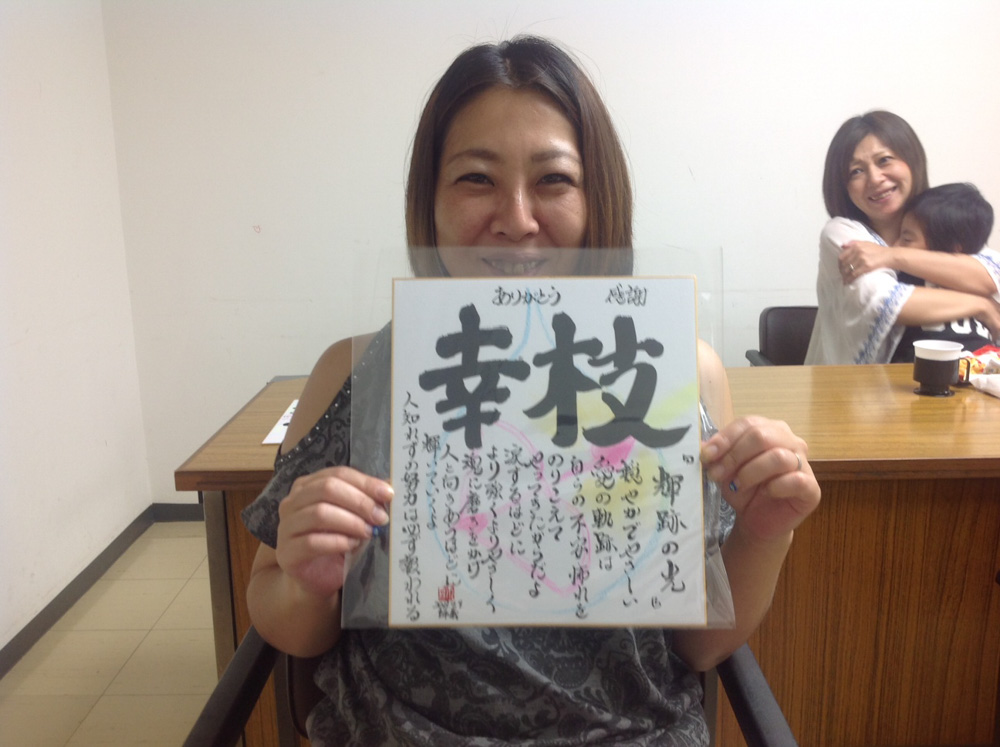 ありがとう 感謝
幸枝
『輝跡の光』
穏やかでやさしい
光の軌跡は
自らの不安怖れを
のりこえて
やってきたからだよ
涙するほどに
より深くよりやさしく
魂に磨きかかり
人と向きあうほどに
輝いていくよ
人知れずの努力は必ず報われる